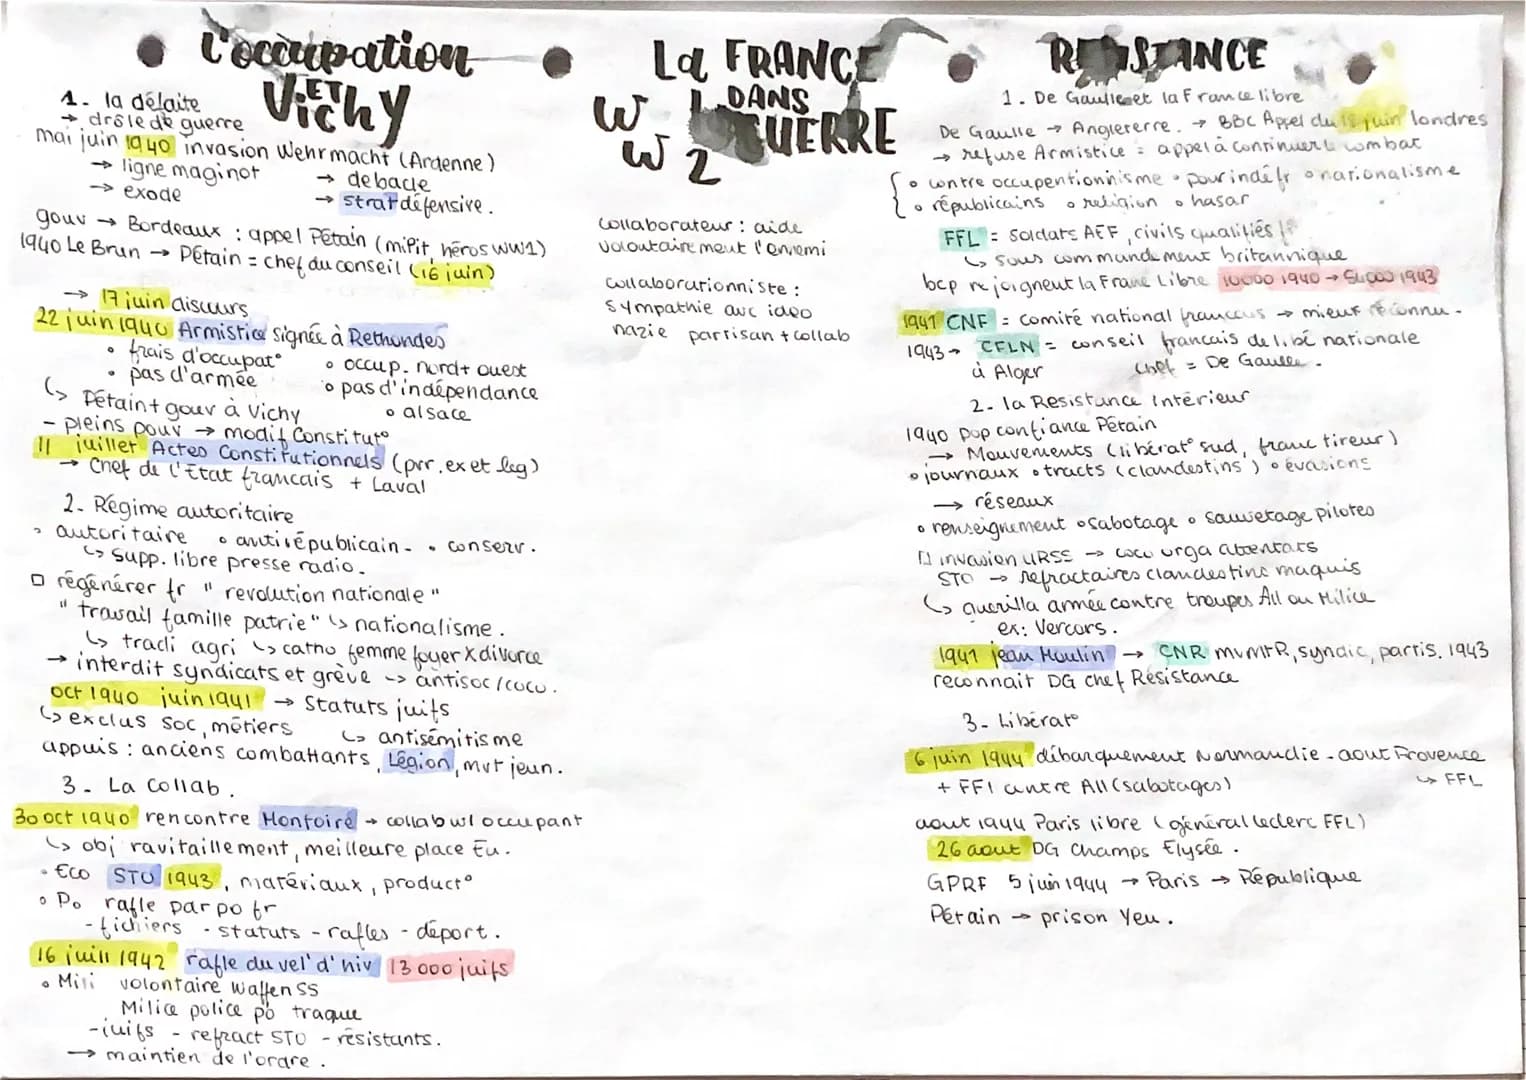 L'occupation
ET
Vichy
1. la défaite
→ drôle de guerre
mai juin 1940 invasion Wehrmacht (Ardenne)
→ ligne maginot → debacle
→ exode → strat défensive.
gouv → Bordeaux : appel Pétain (milit, héros WW1)
1940 Le Brun → Pétain = chef du conseil (16 juin)
→ 17 juin discours
22 juin 1940 Armistice signée à Rethondes
• frais d'occupat° • occup. nord + ouest
• pas d'armée • pas d'indépendance
↳ Pétain + gouv à Vichy • alsace
- pleins pouv → modif Constitut°
11 juillet Actes Constitutionnels (prr. ex et leg)
→ Chef de l'Etat francais + Laval
2. Régime autoritaire
• autoritaire • antirépublicain - • conserv.
↳ supp. libre presse radio.
□ régénérer fr " revolution nationale "
" travail famille patrie" ↳ nationalisme.
↳ tradi agri ↳ catho femme foyer X divorce
→ interdit syndicats et grève → antisoc/coco.
oct 1940 juin 1941 → Statuts juifs
↳ exclus soc, métiers ↳ antisémitisme
appuis : anciens combattants, Légion, mvt jeun.
3. La Collab.
30 oct 1940 rencontre Montoire → collab w/ occupant
↳ obj ravitaillement, meilleure place Eu.
• Eco STO 1943, matériaux, product°
• Po rafle par po fr
- fichiers - statuts - rafles - déport.
16 juill 1942 rafle du vel' d'hiv 13 000 juifs
• Mili volontaire Waffen SS
Milice police po traque
- juifs - refract STO - résistants.
→ maintien de l'ordre.
La FRANCE
DANS
LA GUERRE
WW2
collaborateur : aide
voloutairement l'ennemi
collaborationniste :
sympathie avc idéo
nazie partisan + collab
RESISTANCE
1. De Gaulle et la France libre
De Gaulle → Angleterre. → BBC Appel du 18 juin londres
→ refuse Armistice = appel à continuer le combat
• contre occupentionnisme • pour indé fr • nationalisme
• républicains • religion • hasar
FFL = soldats AEF, civils qualifiés
↳ sous commandement britannique
bcp rejoignent la France Libre 10000 1940 → 1943
1941 CNF = comité national francais → mieux reconnu.
1943 → CFLN = conseil francais de libé nationale
à Alger chef = De Gaulle.
2- la Resistance Intérieur
1940 pop confiance Pétain
→ Mouvements (libérat° sud, franc tireur)
• journaux • tracts (clandestins) • évasions
→ réseaux
• renseignement • sabotage • sauvetage pilotes
□ invasion URSS → coco orga attentats
STO → refractaires clandestins maquis
↳ guerilla armée contre troupes All ou Milice
ex: Vercors.
1941 jean Moulin → CNR mvmtR, syndic, partis. 1943
reconnait DG chef Résistance
3- Libérat°
6 juin 1944 débarquement Normandie - aout Provence
+ FFI contre All (sabotages) ↳ FFL
aout 1944 Paris libre (général leclerc FFL)
26 aout DG Champs Elysée.
GPRF 5 juin 1944 → Paris → République
Pétain → prison Yeu.